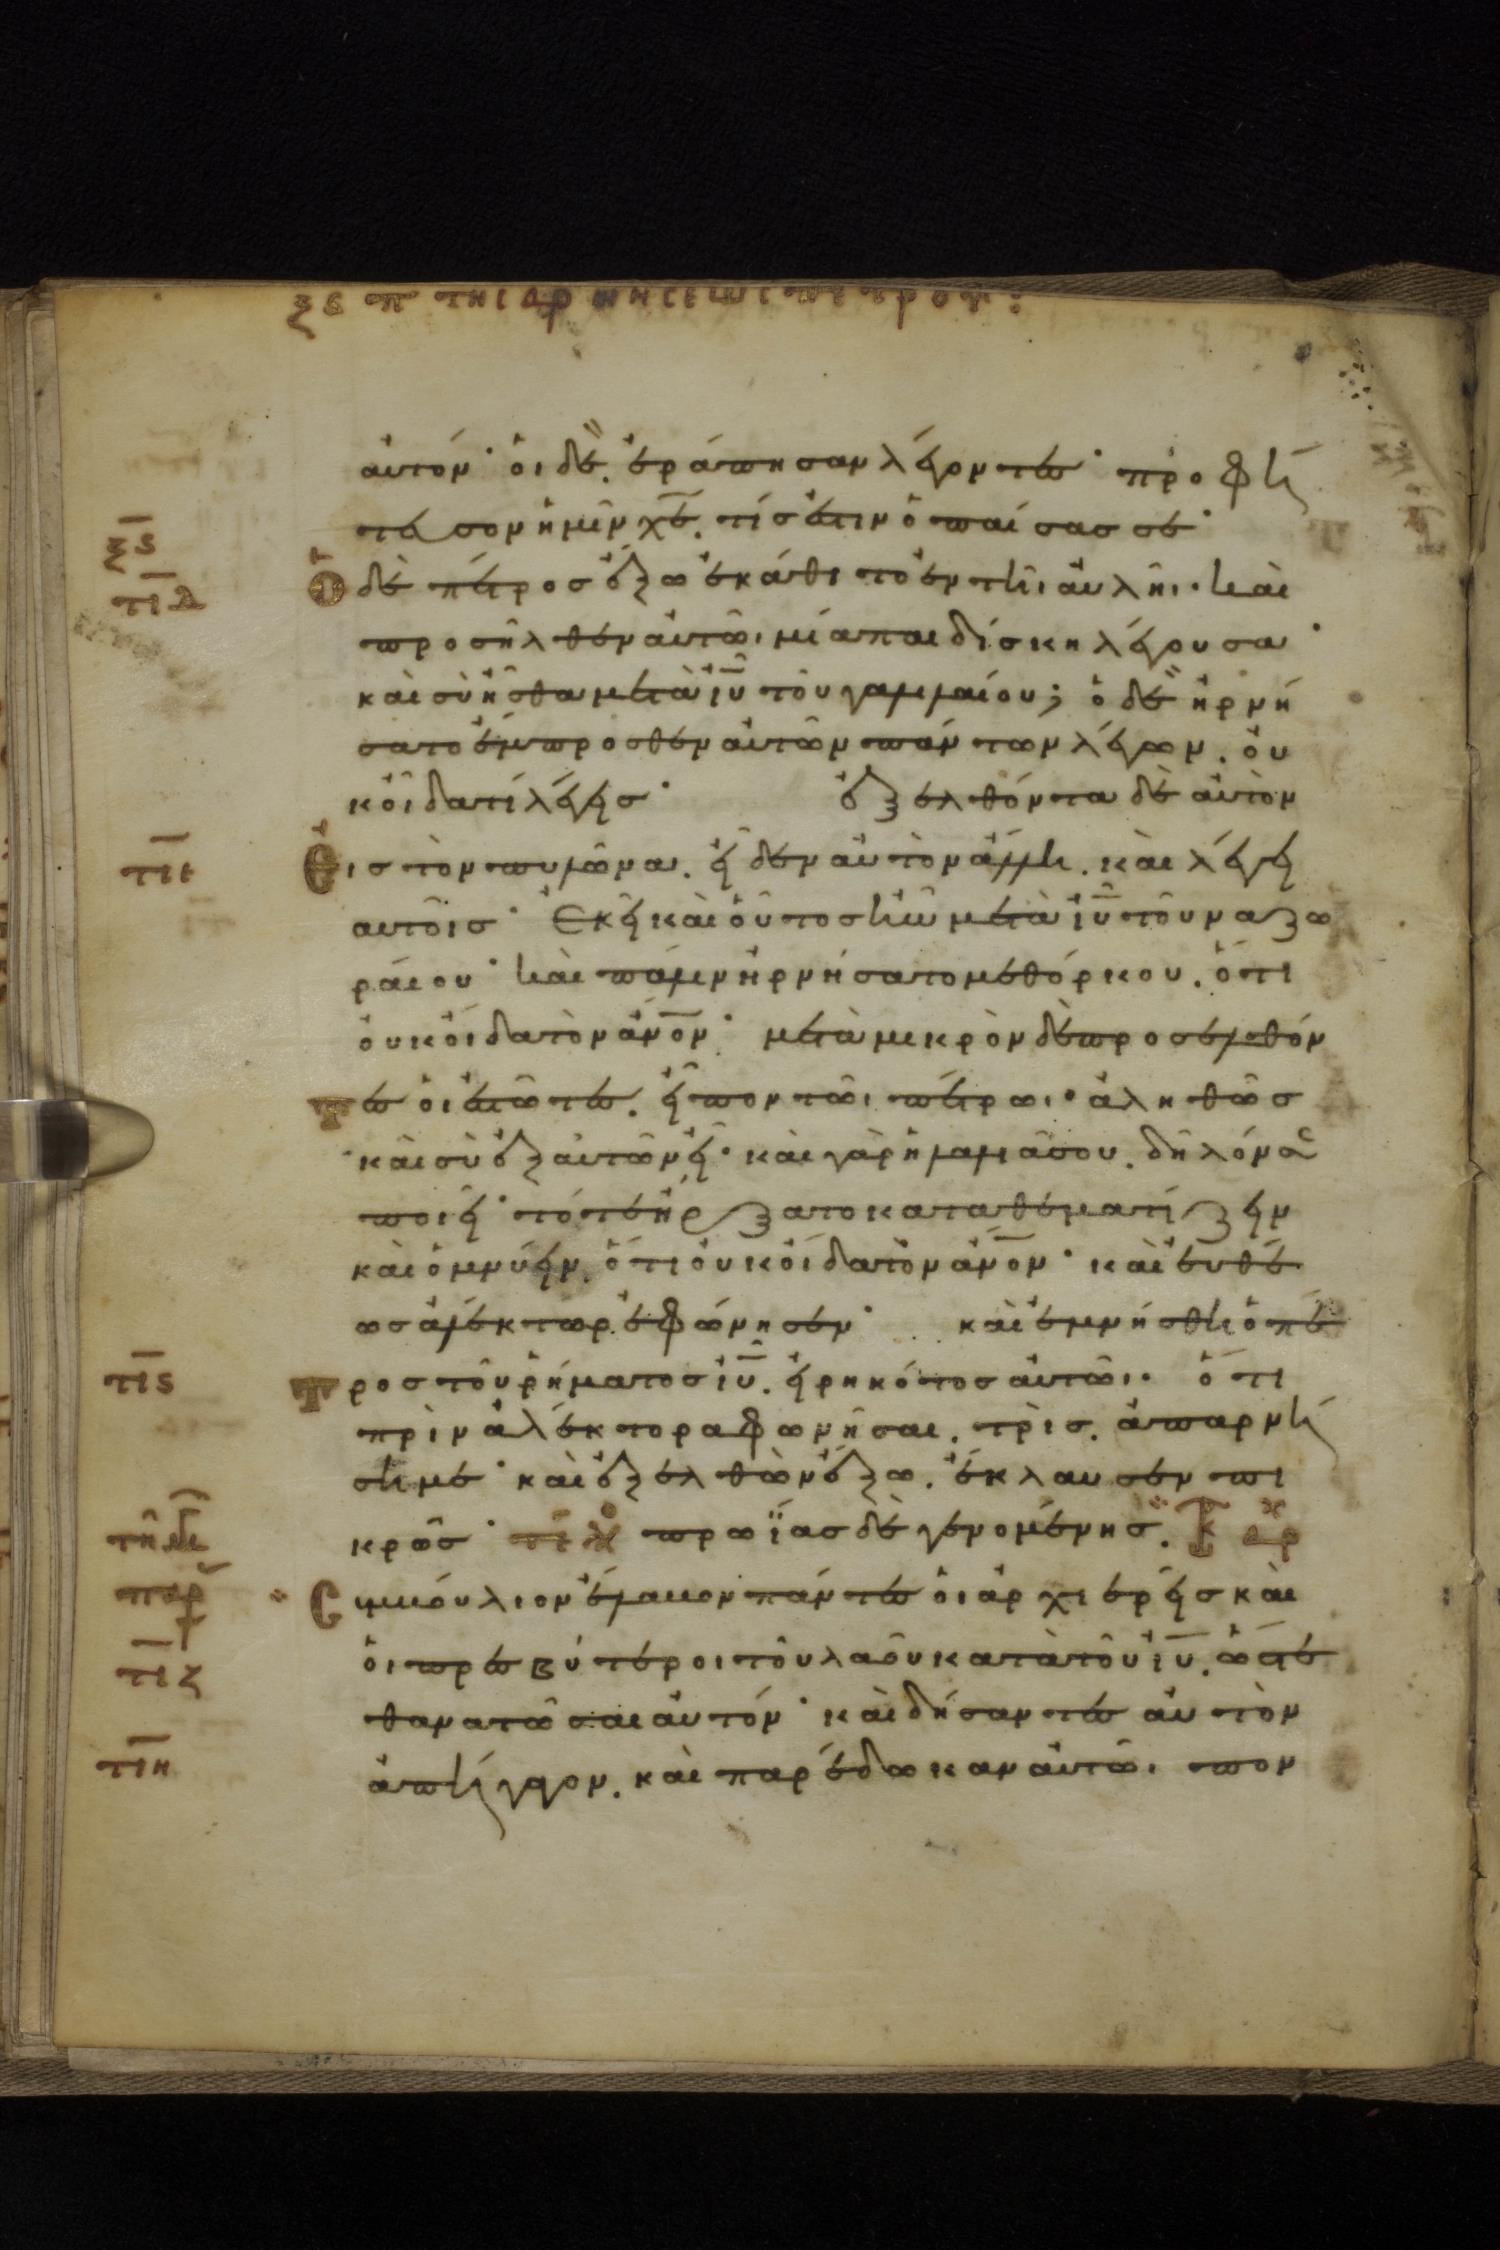 ξϛ π τῆς ἀρνήσεως πέτρου :
αὐτόν· οἱ δὲ. ἐράπησαν λέγοντες· προφή
τευσον ἡμῖν χ̅ε̅. τίς ἐστιν ὁ παίσας σε·
ξ̅ϛ̅
τ̅ι̅δ̅
Ὁ δὲ πέτρος ἔξω ἐκάθητο ἐν τῆι αὐλῆι· καὶ
προσῆλθεν αὐτῶι μία παιδίσκη λέγουσα·
καὶ σὺ ἦσθα μετὰ ἰ̅υ̅ τοῦ γαλιλαίου; ὁ δὲ ἠρνή
σατο ἔμπροσθεν αὐτῶν πάντων λέγων. οὐ
κ οἶδα τί λέγεις· ἐξελθόντα δὲ αὐτὸν
τ̅ι̅ε̅
Εἰς τὸν πυλῶνα. εἶδεν αὐτὸν ἄλλη. καὶ λέγει
αὐτοῖς· Ἐκεῖ καὶ οὗτος ἦν μετὰ ἰ̅υ̅ τοῦ ναζω
ραίου· καὶ πάλιν ἠρνήσατο μεθόρκου. ὅτι
οὐκ οἶδα τὸν ἄν̅ο̅ν· μετὰ μικρὸν δὲ προσελθόν
τες οἱ ἑστῶτες. εἶπον τῶι πέτρωι· ἀληθῶς
καὶ σὺ ἐξ αὐτῶν εἶ· καὶ γὰρ ἡ λαλιά σου. δῆλόν σε
ποιεῖ· τότε ἤρξατο καταθεματίζειν
καὶ ὀμνύειν. ὅτι οὐκ οἶδα τὸν ἄν̅ο̅ν· καὶ εὐθέ
ως ἀλέκτωρ ἐφώνησεν· καὶ ἐμνήσθη ὁ πέ
τ̅ι̅ϛ̅
τρος τοῦ ῥήματος ἰ̅υ̅. εἰρηκότος αὐτῶι· ὅτι
πρὶν ἀλέκτορα φωνῆσαι. τρὶς. ἀπαρνή
ση με· καὶ ἐξελθὼν ἔξω. ἔκλαυσεν πι
κρῶς· πρωΐας δὲ γενομένης.
Συμβούλιον ἔλαβον πάντες οἱ ἀρχιερεῖς καὶ
τ̅ι̅ζ̅
οἱ πρεσβύτεροι τοῦ λαοῦ κατὰ τοῦ ἰ̅υ̅. ὥστε
θανατῶσαι αὐτόν· καὶ δήσαντες αὐτὸν
τ̅ι̅η̅
ἀπήγαγον. καὶ παρέδωκαν αὐτῶι πον